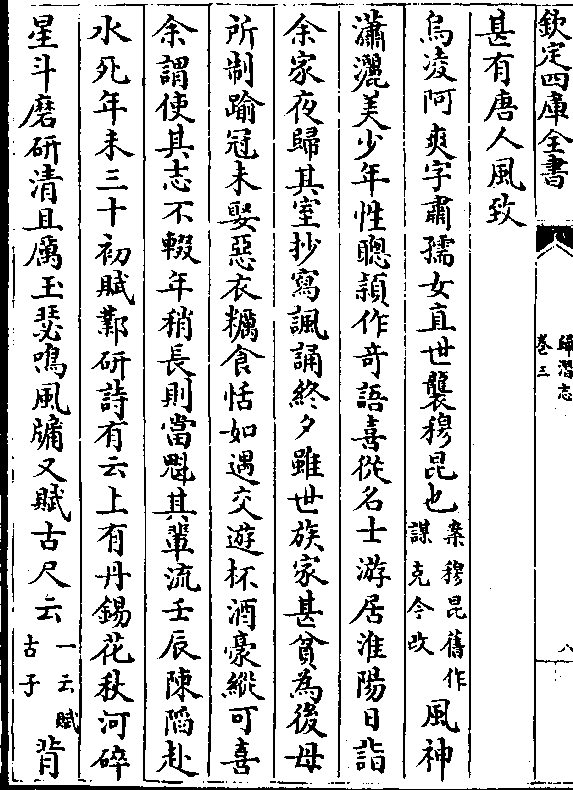 欽定四庫全書
歸潛志
卷三
八
甚有唐人風致
烏凌阿爽字肅孺女直世襲穆昆也案穆昆舊作謀克今改風神
瀟灑美少年性聰頴作竒語喜從名士游居淮陽日詣
余家夜歸其室抄寫諷誦終夕雖世族家甚貧為後母
所制踰冠未娶惡衣糲食恬如遇交遊杯酒豪縱可喜
余謂使其志不輟年稍長則當魁其輩流壬辰陳䧟赴
水死年未三十初賦鄴研詩有云上有丹錫花秋河碎
星斗磨研清且厲玉瑟鳴風牖又賦古尺云一云賦古子背